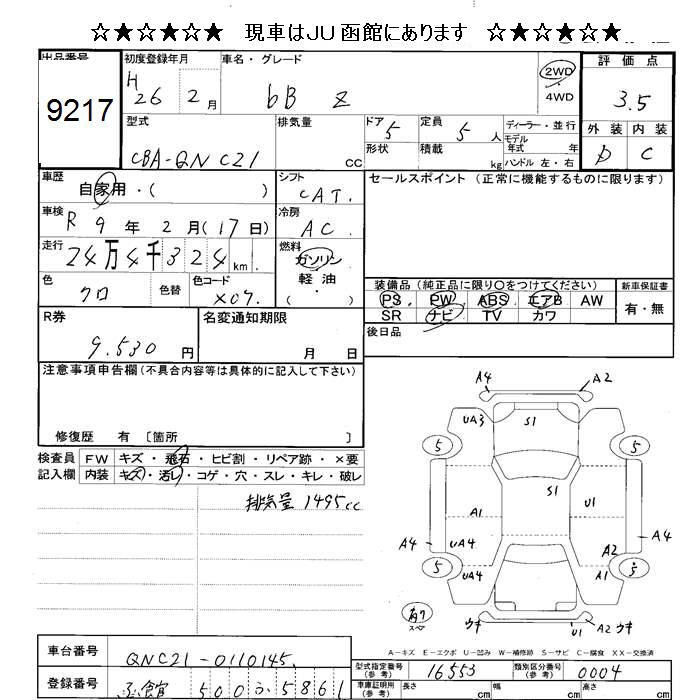 ☆★☆★☆★ 現車はJU函館にあります ☆★☆★☆★
出品番号 初度登録年月 車名・グレード 評価点
9217 H 26 2月 bB Z 2WD 4WD 3.5
型式 排気量 ドア 5 定員 5人 ディーラー・並行 外装 内装
CBA-QNC21 cc 形状 積載 kg モデル年式 年 D C
ハンドル 左・右
車歴 自家用・( ) シフト CAT. セールスポイント (正常に機能するものに限ります)
車検 R 9年 2月(17日) 冷房 AC.
走行 24万4千324km 燃料 ガソリン 軽油 ( )
色 クロ 色替 色コード X07. 装備品(純正品に限り〇をつけてください) 新車保証書
PS PW ABS エアB AW 有・無
SR ナビ TV カワ
R券 9.530円 名変通知期限 月 日 後日品
注意事項申告欄(不具合内容等は具体的に記入して下さい)
修復歴 有 [箇所 ]
検査員 FW キズ・飛石・ヒビ割・リペア跡・×要
記入欄 内装 キズ・汚レ・コゲ・穴・スレ・キレ・破レ
排気量 1495cc
A4 A2
UA3 S1
5 5
S1
A1 U1
A4 UA4 A2 A4
5 UA4 A1 5
有り スペア ウキ U1 A2 ウキ
A-キズ E-エクボ U-凹み W-補修跡 S-サビ C-腐食 XX-交換済
車台番号 QNC21-0110145 型式指定番号(参考) 16553 類別区分番号(参考) 0004
登録番号 函館 500 ふ 5861 車庫証明用(参考) 長さ cm 幅 cm 高さ cm